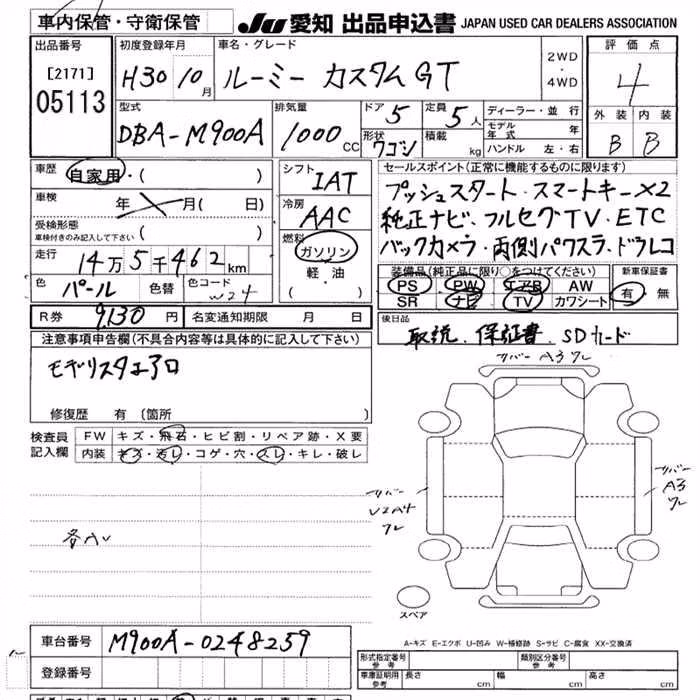 車内保管・守衛保管
JU 愛知 出品申込書 JAPAN USED CAR DEALERS ASSOCIATION
出品番号
[2171]
05113
初度登録年月
H30 10月
車名・グレード
ルーミー カスタムGT
2WD
・
4WD
評価点
4
外装 内装
B B
型式
DBA-M900A
排気量
1000cc
ドア
5
定員
5人
形状
ワゴン
積載
kg
ディーラー・並行
モデル年式 年
ハンドル 左・右
車歴
自家用・( )
車検
年 月( 日)
受検形態
車検付きのみ記入して下さい ( )
走行
14万5千462km
色
パール
色替
色コード
W24
シフト
IAT
冷房
AAC
燃料
ガソリン
軽油
( ・ )
セールスポイント(正常に機能するものに限ります)
プッシュスタート・スマートキー×2
純正ナビ・フルセグTV・ETC
バックカメラ・両側パワスラ・ドラレコ
装備品(純正品に限り○をつけてください)
PS PW エアB AW
SR ナビ TV カワシート
新車保証書
有・無
R券 9,130円
名変通知期限 月 日
後日品
取説、保証書、SDカード
注意事項申告欄(不具合内容等は具体的に記入して下さい)
モデリスタエアロ
修復歴 有(箇所 )
検査員
記入欄
FW キズ・飛石・ヒビ割・リペア跡・X要
内装 キズ・汚レ・コゲ・穴・スレ・キレ・破レ
リバー A3 ワレ
リバー
U2A4
ワレ
リバー
A3
ワレ
スペア
A-キズ E-エクボ U-凹み W-補修跡 S-サビ C-腐食 XX-交換済
車台番号
M900A-0248259
登録番号
形式指定番号
参考
類別区分番号
参考
車庫証明用
参考
長さ cm
幅 cm
高さ cm